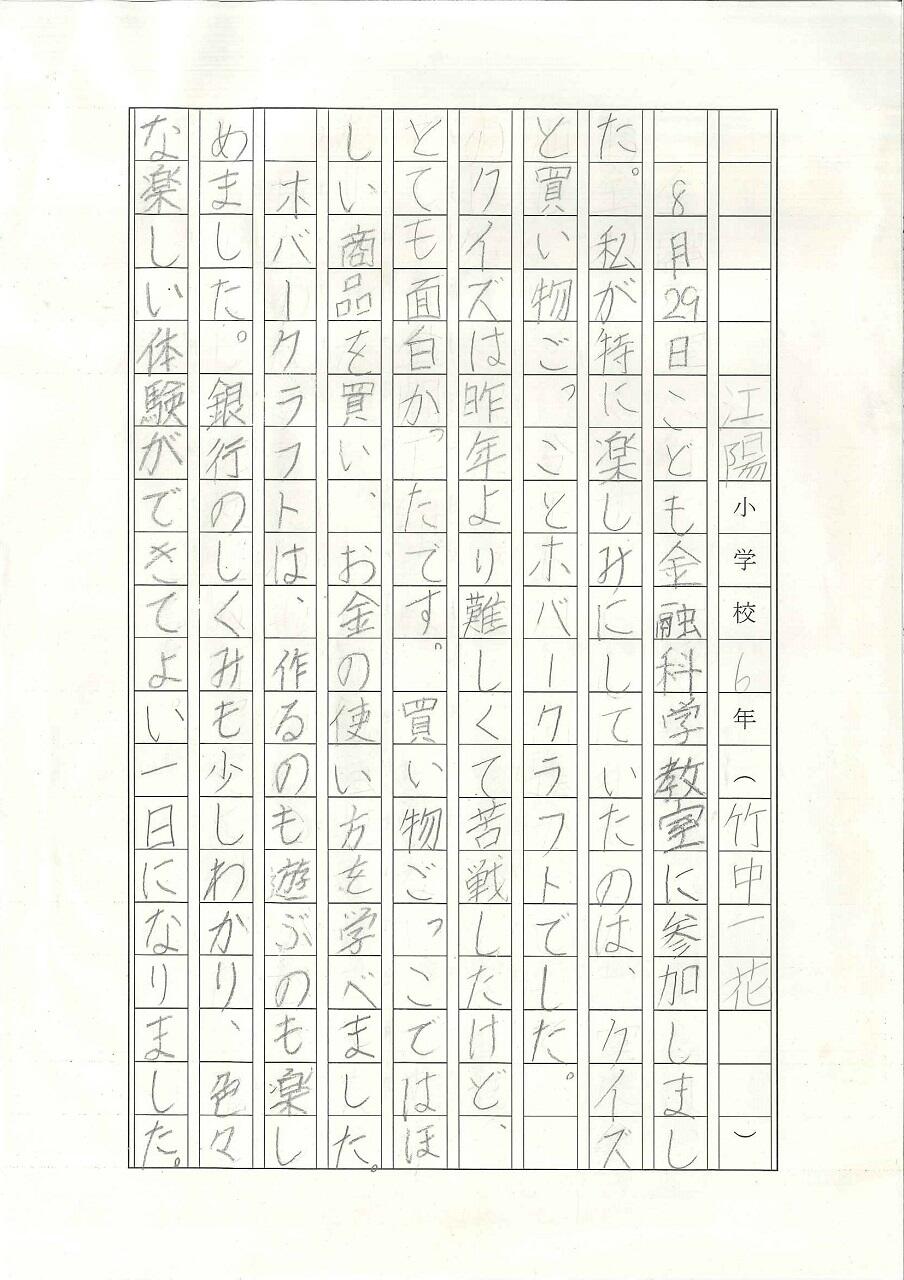 江陽小学校6年（竹中一花）
8月29日こども金融科学教室に参加しまし
た。私が特に楽しみにしていたのは、クイズ
と買い物ごっことホバークラフトでした。
クイズは昨年より難しくて苦戦したけど、
とても面白かったです。買い物ごっこではほ
しい商品を買い、お金の使い方を学べました。
ホバークラフトは、作るのも遊ぶのも楽し
めました。銀行のしくみも少しわかり、色々
な楽しい体験ができてよい一日になりました。